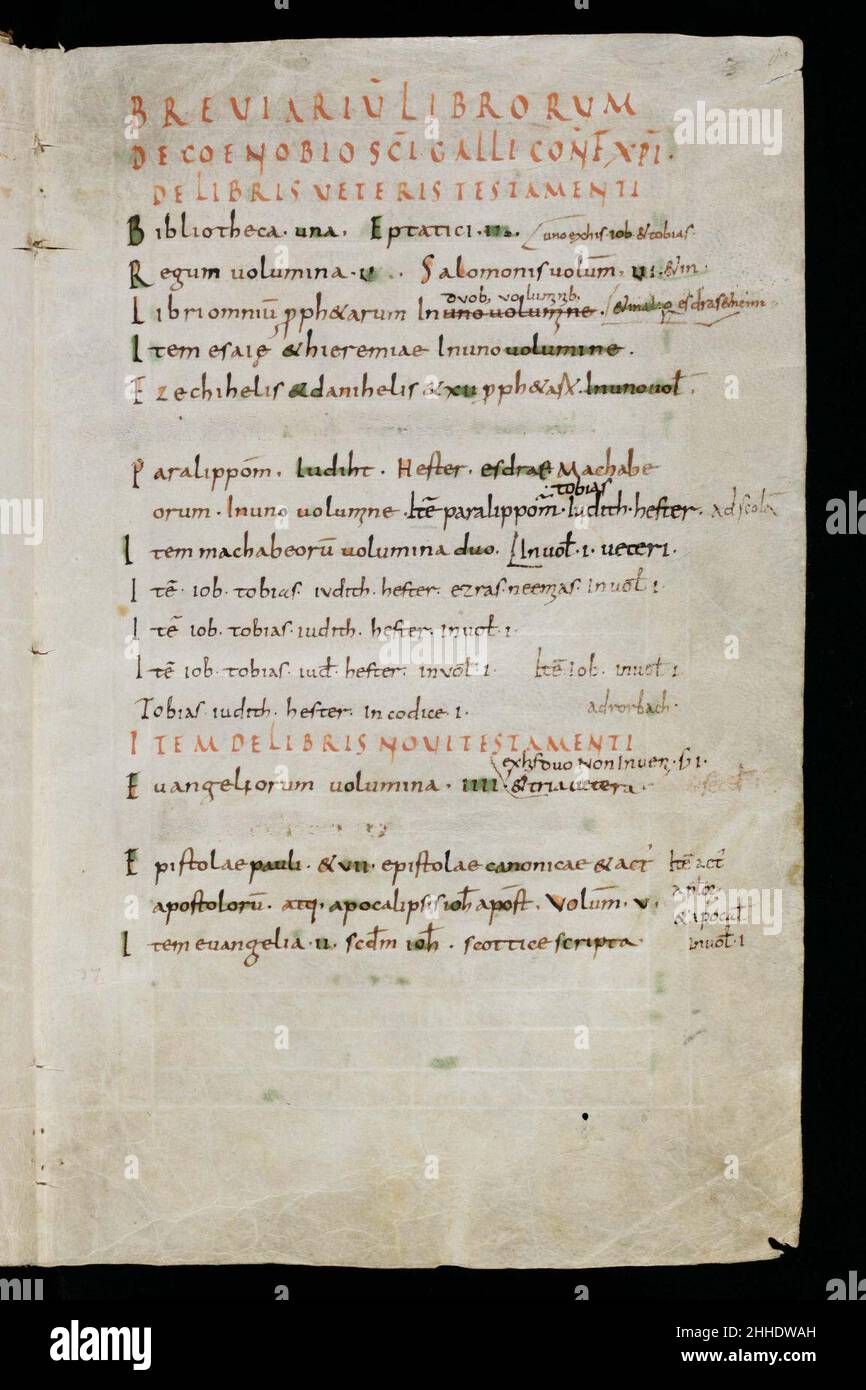 BREVIARIŪ LIBRORUM
DE COENOBIO SC̄I GALLI CŌNF XP̄I.
DE LIBRIS VETERIS TESTAMENTI
Bibliotheca· una. Eptatici· III. uno ex his iob· & tobias·
Regum uolumina · V . Salomonis uolum̄ · VI · & III·
Libri omniū ꝓph&arum In uno uolumine .
duob, uoluminib,
Item esaię & hieremiae In uno uolumine .
Ezechihelis & danihelis & XV ꝓph&aꝝ . In uno uol̄
Paralippom̄. Iudiht· Hester. esdrae Machabe
orum · In uno uolumine Itē paralippom̄· tobias Iudith· hester. ad scolā
Item machabeorū uolumina duo. In uol̄· I · ueteri ·
Itē· iob· tobias· iudith· hester· ezras· neemias· In uol̄ I·
Itē iob· tobias· iudith· hester· In uol̄· I ·
Itē iob· tobias· iud̄· hester· in uol̄· I· Itē Iob· in uol̄ I
Tobias· iudith· hester· in codice I· ad rorbach·
ITEM DE LIBRIS NOVI TESTAMENTI
ex his duo non
Euangeliorum uolumina · IIII · & tria uetera ·
Epistolae pauli · & VII· epistolae canonicae & act̄ Itē act̄
apostolorū· atq· apocalips· s̄ ioh̄ apost̄. Volum̄· V·
& apocal̄
Item euangelia· II· scd̄m ioh̄ · scottice scripta In uol̄· I
alamy
Image ID: 2HHDWAH
www.alamy.com